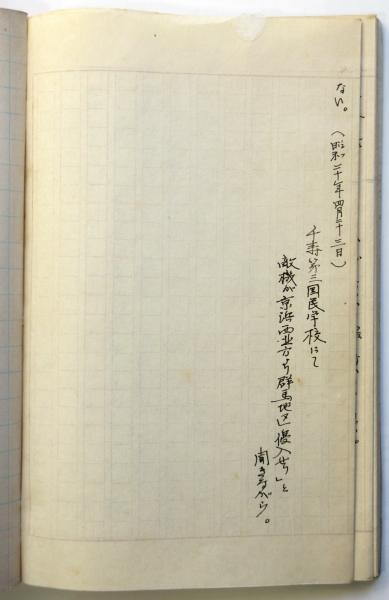 ない。（昭和二十年四月二十三日）
千寿第三国民学校にて
敵機が京浜西北方ヨリ群馬地区侵入セリ」と
聞きながら。